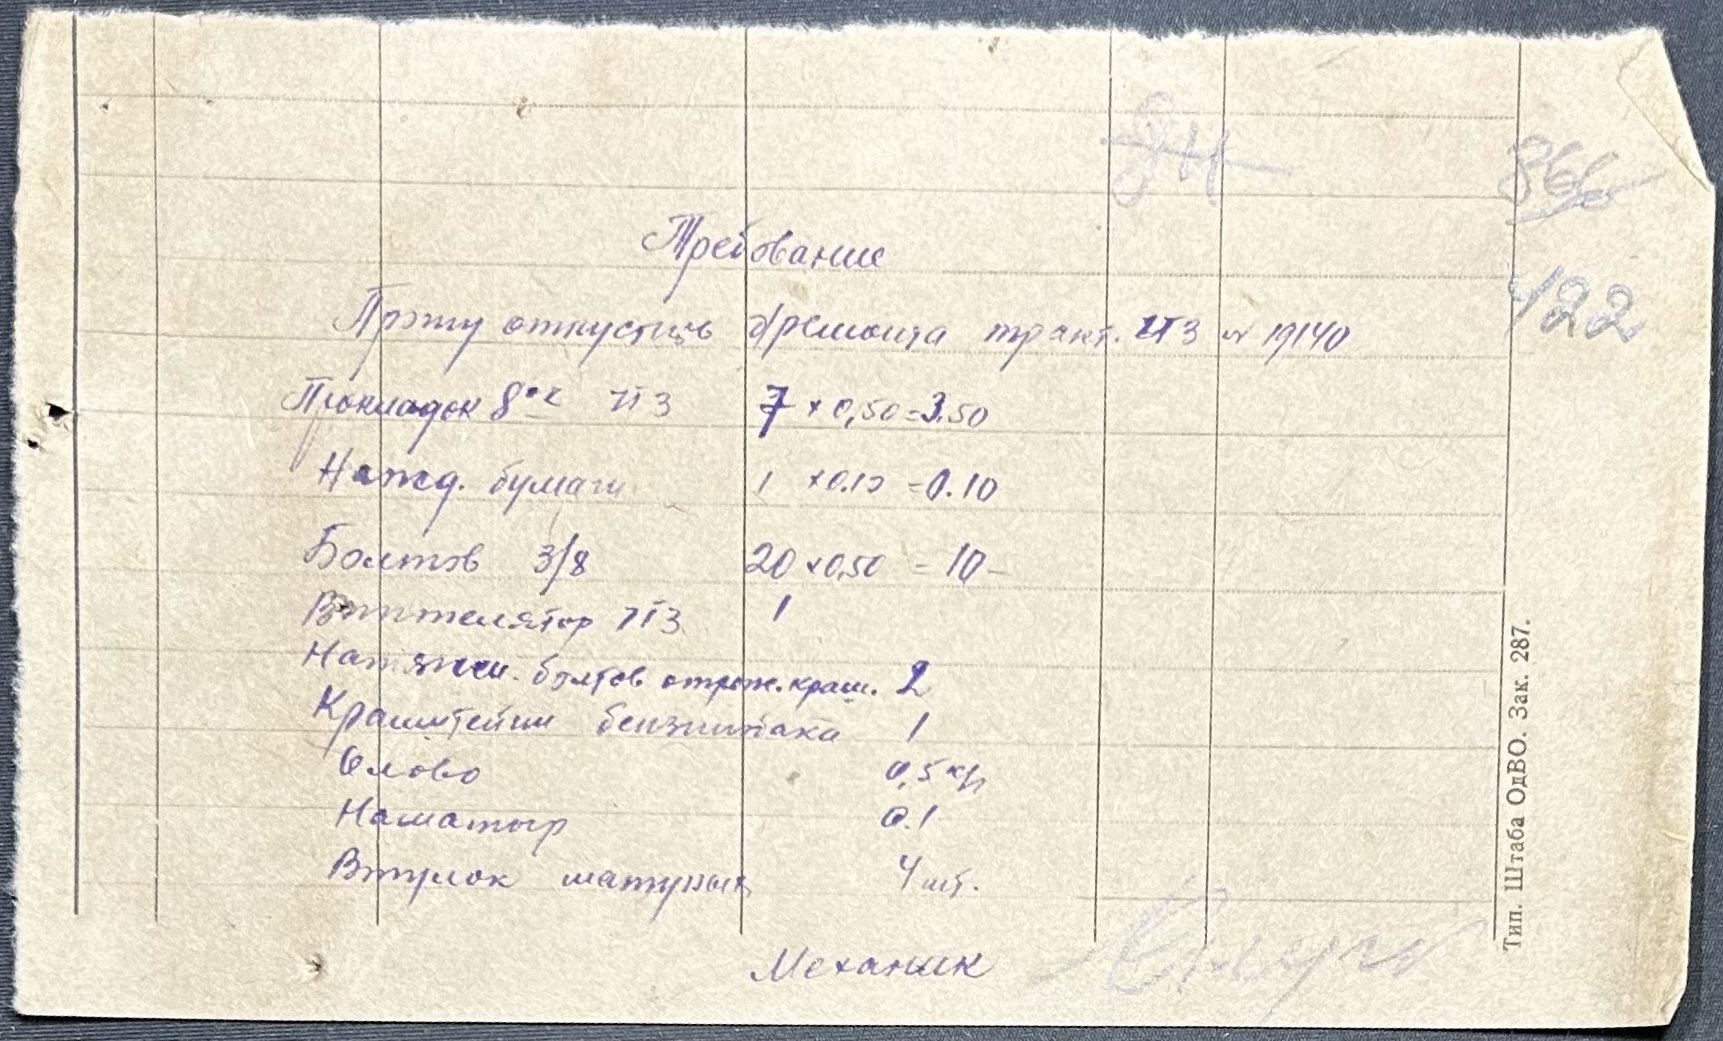 866
422
Требование
Прошу отпустить для ремонта тракт. ЧТЗ № 19140
Прокладок ЧТЗ 7 × 0,50 = 3.50
Нажд. бумаги 1 × 0.10 = 0.10
Болтов 3/8 20 × 0,50 = 10 –
Вентелятор ЧТЗ 1
Натяжн. болтов 2
Кранштейн бензинбака 1
Олово 0,5 кг
Нашатыр 0.1
Втулок шатуных 4 шт.
Механик
Тип. Штаба ОдВО. Зак. 287.